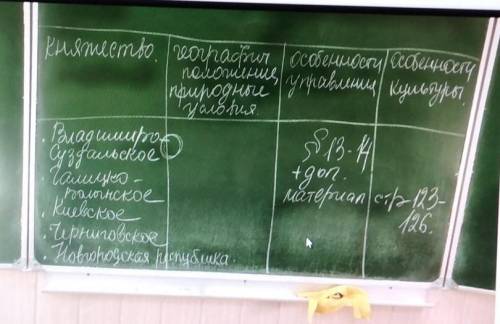 Княжество.
географич
положение,
природные
условия.
особенности
управления
особенности
культуры.
. Владимиро-
Суздальское
. Галицко-
Волынское
. Киевское
. Черниговское
. Новгородская республика.
§ 13-14
+ доп.
материал
стр-123-
126.